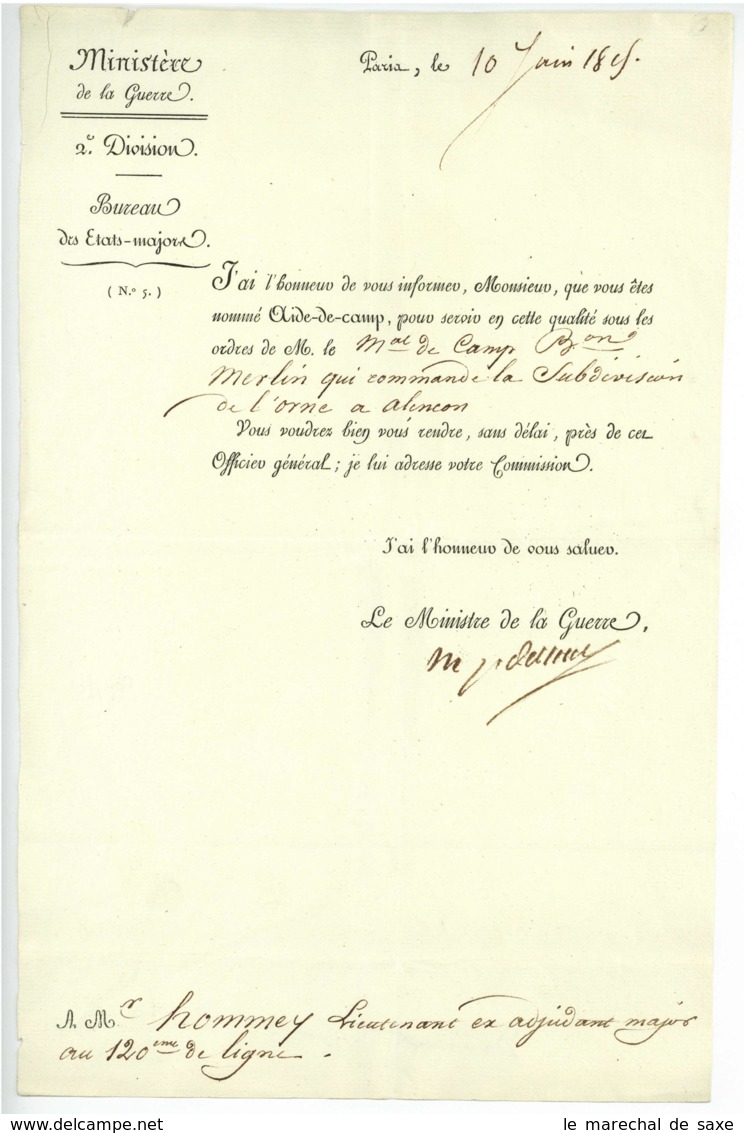 Ministère
de la Guerre.
2.e Division.
Bureau
des Etats-majors.
(N.o 5.)
Paris, le 10 Juin 1815.
J'ai l'honneur de vous informer, Monsieur, que vous êtes
nommé Aide-de-camp, pour servir en cette qualité sous les
ordres de M. le Mal de Camp Bon
Merlin qui commande la Subdivision
de l'orne a alencon
Vous voudrez bien vous rendre, sans délai, près de cet
Officier général; je lui adresse votre Commission.
J'ai l'honneur de vous saluer.
Le Ministre de la Guerre,
A Mr hommey Lieutenant ex adjudant major
au 120eme de ligne.
le marechal de saxe